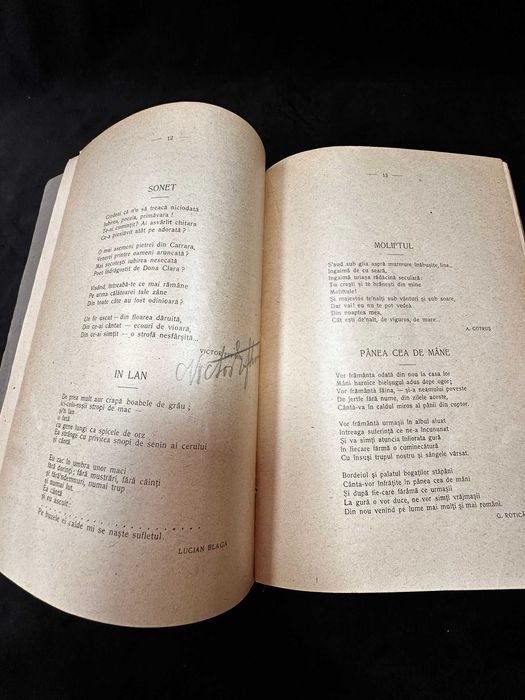 — 12 —
SONET
Credeai că n'o să treacă niciodată
Iubirea, poezia, primăvara !
Te-ai cumințit? Ai asvârlit chitara
Ce-a preslăvit atât pe adorată ?
O mai asemeni pietrei din Carrara,
Venerei printre oameni aruncată ?
Mai socotești iubirea nesecată
Poet îndrăgostit de Dona Clara ?
Visând, întreabă-te ce mai rămâne
Pe urma călătoarei tale zâne
Din toate câte au fost odinioară ?
Un fir uscat — din floarea dăruită,
Din ce-ai cântat — ecouri de vioară,
Din ce-ai simțit — o strofă nesfârșită...
VICTOR
Victor
IN LAN
De prea mult aur crapă boabele de grâu ;
ici-colo roșii stropi de mac —
și'n lan
o fată
cu gene lungi ca spicele de orz
Ea strânge cu privirea snopi de senin ai cerului
și cântă
Eu zac în umbra unor maci
fără dorinți, fără mustrări, fără căinți
și fără'ndemnuri, numai trup
și numai lut.
Ea cântă
și eu ascult.
Pe buzele ei calde mi se naște sufletul.
LUCIAN BLAGA
— 13 —
MOLIFTUL
S'aud sub glia aspră murmure înăbușite, lina
Ingaimă de cu seară,
Ingaimă uriașa rădăcină seculară:
Tu crești și te hrănești din mine
Molidule!
Și majestos te'nalți sub vânturi și sub soare,
Dar vai! eu nu te pot vedea
Din noaptea mea,
Cât ești de'nalt, de viguros, de mare...
A. COTRUȘ
PÂNEA CEA DE MÂNE
Vor frământa odată din nou la casa lor
Mâni harnice bielșugul adus depe ogor;
Vor frământa făina, — și-așa cum se povestea
De jertfe fără nume, din zilele aceste,
Cântă-va în caldul miros al pânii din cuptor.
Vor frământa urmașii în albul aluat
Intreaga suferință ce ne-a încununat
Și va simți atuncia înfiorata gură
In fiecare fărmă o cuminecătură
Cu însuși trupul nostru și sângele vărsat.
Bordeiul și palatul bogaților stăpâni
Cânta-vor înfrățite în pânea cea de mâni
Și după fie-care fărâmă ce urmașii
La gură o vor duce, ne vor simți vrăjmașii
Din nou venind pe lume mai mulți și mai români.
G. ROTICĂ